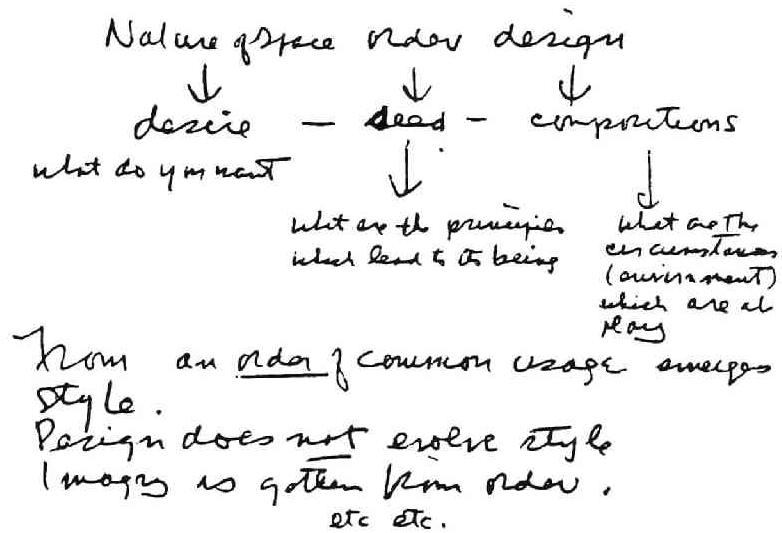 Nature of Space order design
desire – seed – compositions
what do you want
what are the principles
which lead to its being
what are the
circumstances
(environment)
which are at
play
From an order of common usage emerges
style.
Design does not evolve style
Imagry is gotten from order.
etc etc.